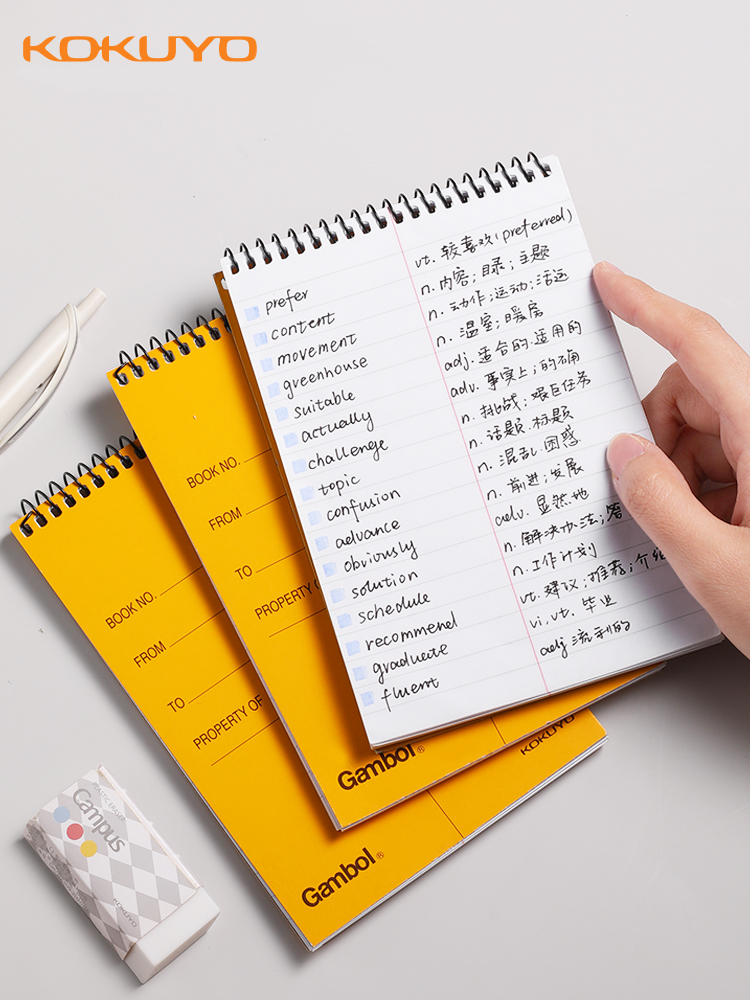 KOKUYO
prefer vt. 较喜欢(preferred)
content n. 内容;目录;主题
movement n. 动作;运动;活运
greenhouse n. 温室;暖房
suitable adj. 适合的.适用的
actually adv. 事实上;的确
challenge n. 挑战;艰巨任务
topic n. 话题.标题
confusion n. 混乱.困惑
advance n. 前进;发展
obviously adv. 显然地
solution n. 解决办法;答
schedule n. 工作计划
recommend vt. 建议;推荐;介绍
graduate vi,vt. 毕业
fluent adj 流利的
BOOK NO.
FROM
TO
PROPERTY OF
Gambol®
KOKUYO
BOOK NO.
FROM
TO
PROPERTY OF
Gambol®
PLASTIC ERASER
Campus
KOKUYO